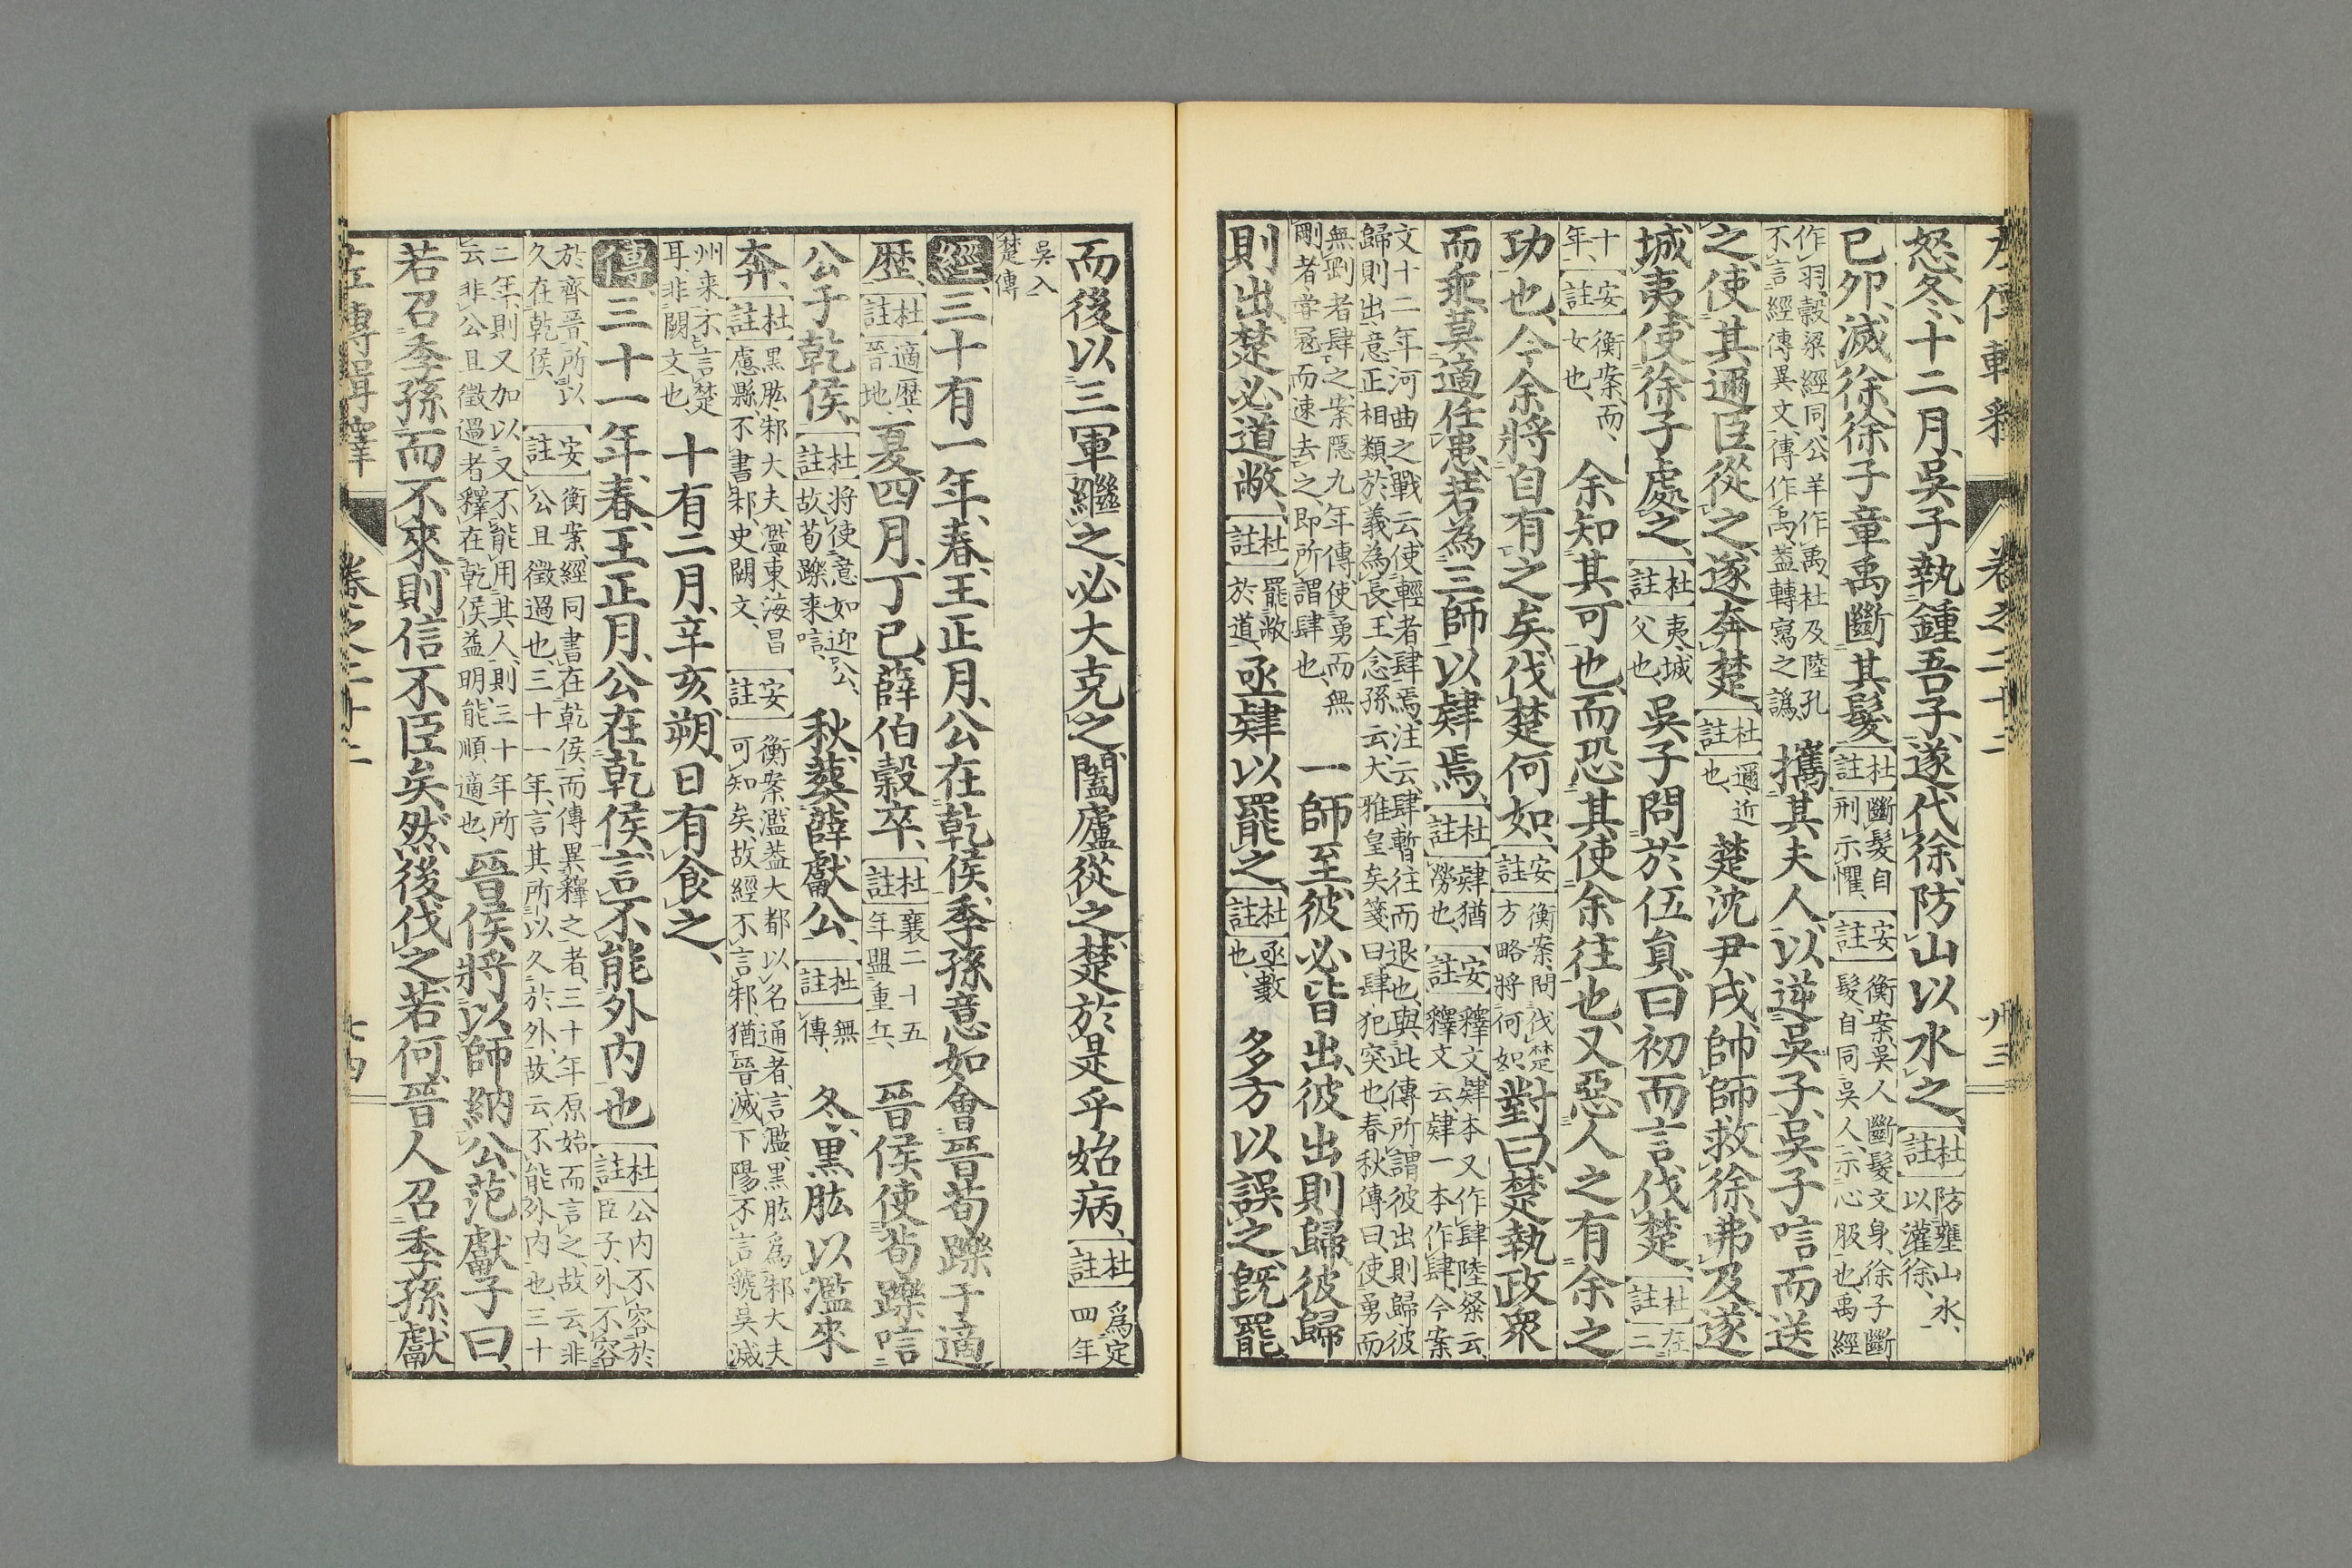 怒、冬、十二月、吳子執鍾吾子、遂代徐、防山以水之、【杜註】防壅山水、以灌徐、
已卯、滅徐、徐子章禹斷其髮【杜註】斷髮自刑示懼、【安註】衡案、吳人斷髮文身、徐子斷髮、自同吳人、示心服也、禹經
作羽、穀梁經同、公羊作禹、杜及陸孔不言經傳異文、傳作禹、蓋轉寫之譌、攜其夫人、以逆吳子、吳子唁而送
之、使其邇臣從之、遂奔楚、【杜註】邇近也、楚沈尹戌、帥師救徐、弗及、遂
城夷、使徐子處之、【杜註】夷、城父也、吳子問於伍員、曰初而言伐楚、【杜註】在二
十年、【安註】衡案、而、女也、余知其可也、而恐其使余往也、又惡人之有余之
功也、今余將自有之矣、伐楚何如、【安註】衡案、問伐楚方略將何如對曰、楚執政衆
而乖、莫適任患、若為三師、以肄焉、【杜註】肄猶勞也、【安註】釋文、肄本又作肆、陸粲云、釋文云、肄一本作肆、今案
文十二年河曲之戰云、使輕者肆焉、注云、肆、暫往而退也、與此傳所謂彼出則歸、彼歸則出、意正相類、於義為長、王念孫云、大雅皇矣箋曰、肆犯突也、春秋傳曰、使勇而
無剛者肆之、案隱九年傳、使勇而無剛者嘗冦而速去之、即所謂肆也、一師至、彼必皆出、彼出則歸、彼歸
則出、楚必道敝、【杜註】罷敝於道、亟肄以罷之、【杜註】亟數也、多方以誤之、既罷
而後以三軍繼之、必大克之、闔廬從之、楚於是乎始病、【杜註】爲定四年
吳入楚傳
經三十有一年、春、王正月、公在乾侯、季孫意如會晉荀躒于適
歴、【杜註】適歴、晉地、夏四月、丁已、薛伯穀卒、【杜註】襄二十五年盟重丘、晉侯使荀躒唁
公于乾侯、【杜註】將使意如迎公、故荀躒来唁、秋、葬薛獻公、【杜註】無傳、冬、黑肱以濫來
奔、【杜註】黒肱、邾大夫、濫、東海昌慮縣、不書邾、史闕文、【安註】衡案、濫蓋大都以名通者、言濫、黒肱爲邾大夫可知矣、故經不言邾、猶晉滅下陽不言虢、吳滅
州来不言楚耳、非闕文也、十有二月、辛亥朔、日有食之、
傳三十一年、春、王正月、公在乾侯、言不能外内也【杜註】公内不容於臣子、外不容
於齊晉、所以久在乾侯、【安註】衡案、經同書在乾侯、而傳異釋之者、三十年原始而言之、故云、非公且徵過也、三十一年、言其所以久於外、故云、不能外内也、三十
二年、則又加以又不能用其人、則三十年所云非公且徵過者、釋在乾侯益明、能順適也、晉侯將以師納公、范獻子曰、
若召季孫而不來、則信不臣矣、然後伐之、若何、晉人召季孫、獻
左傳輯釋　卷之二十二